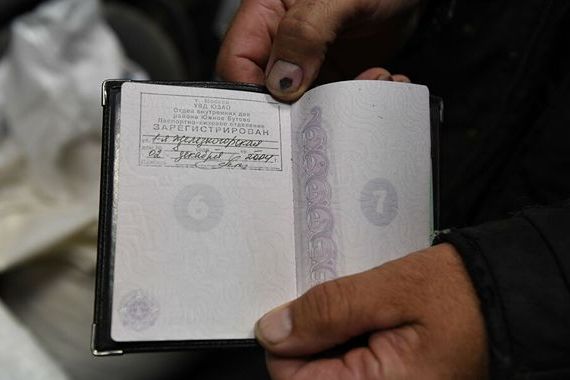 г. Москва
УВД ЮЗАО
Отдел внутренних дел
района Южное Бутово
Паспортно-визовое отделение
ЗАРЕГИСТРИРОВАН
1-я Железногорская
02 декабря 2004
6
7